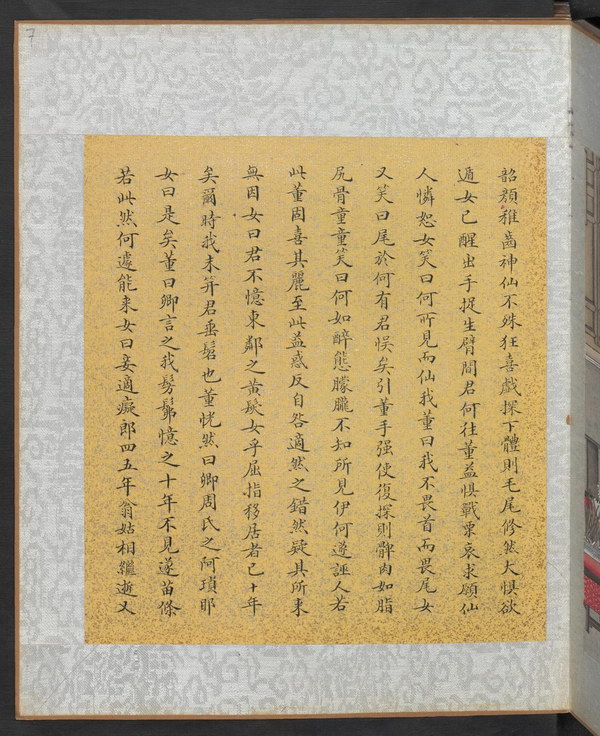 7
韶顏稚齒神仙不殊狂喜戲探下體則毛尾修然大惧欲
遁女已醒出手捉生臂問君何往董益惧戰栗哀求願仙
人憐恕女笑曰何所見而仙我董曰我不畏首而畏尾女
又笑曰尾於何有君悮矣引董手强使復探則髀肉如脂
尻骨童童笑曰何如醉態朦朧不知所見伊何遂誣人若
此董固喜其麗至此益惑反自咎適然之錯然疑其所来
無因女曰君不憶東鄰之黄髮女乎屈指移居者已十年
矣爾時我未笄君垂髫也董恍然曰卿周氏之阿瑣耶
女曰是矣董曰卿言之我髣髴憶之十年不見遂苗條
若此然何遽能来女曰妾適癡郎四五年翁姑相繼逝又